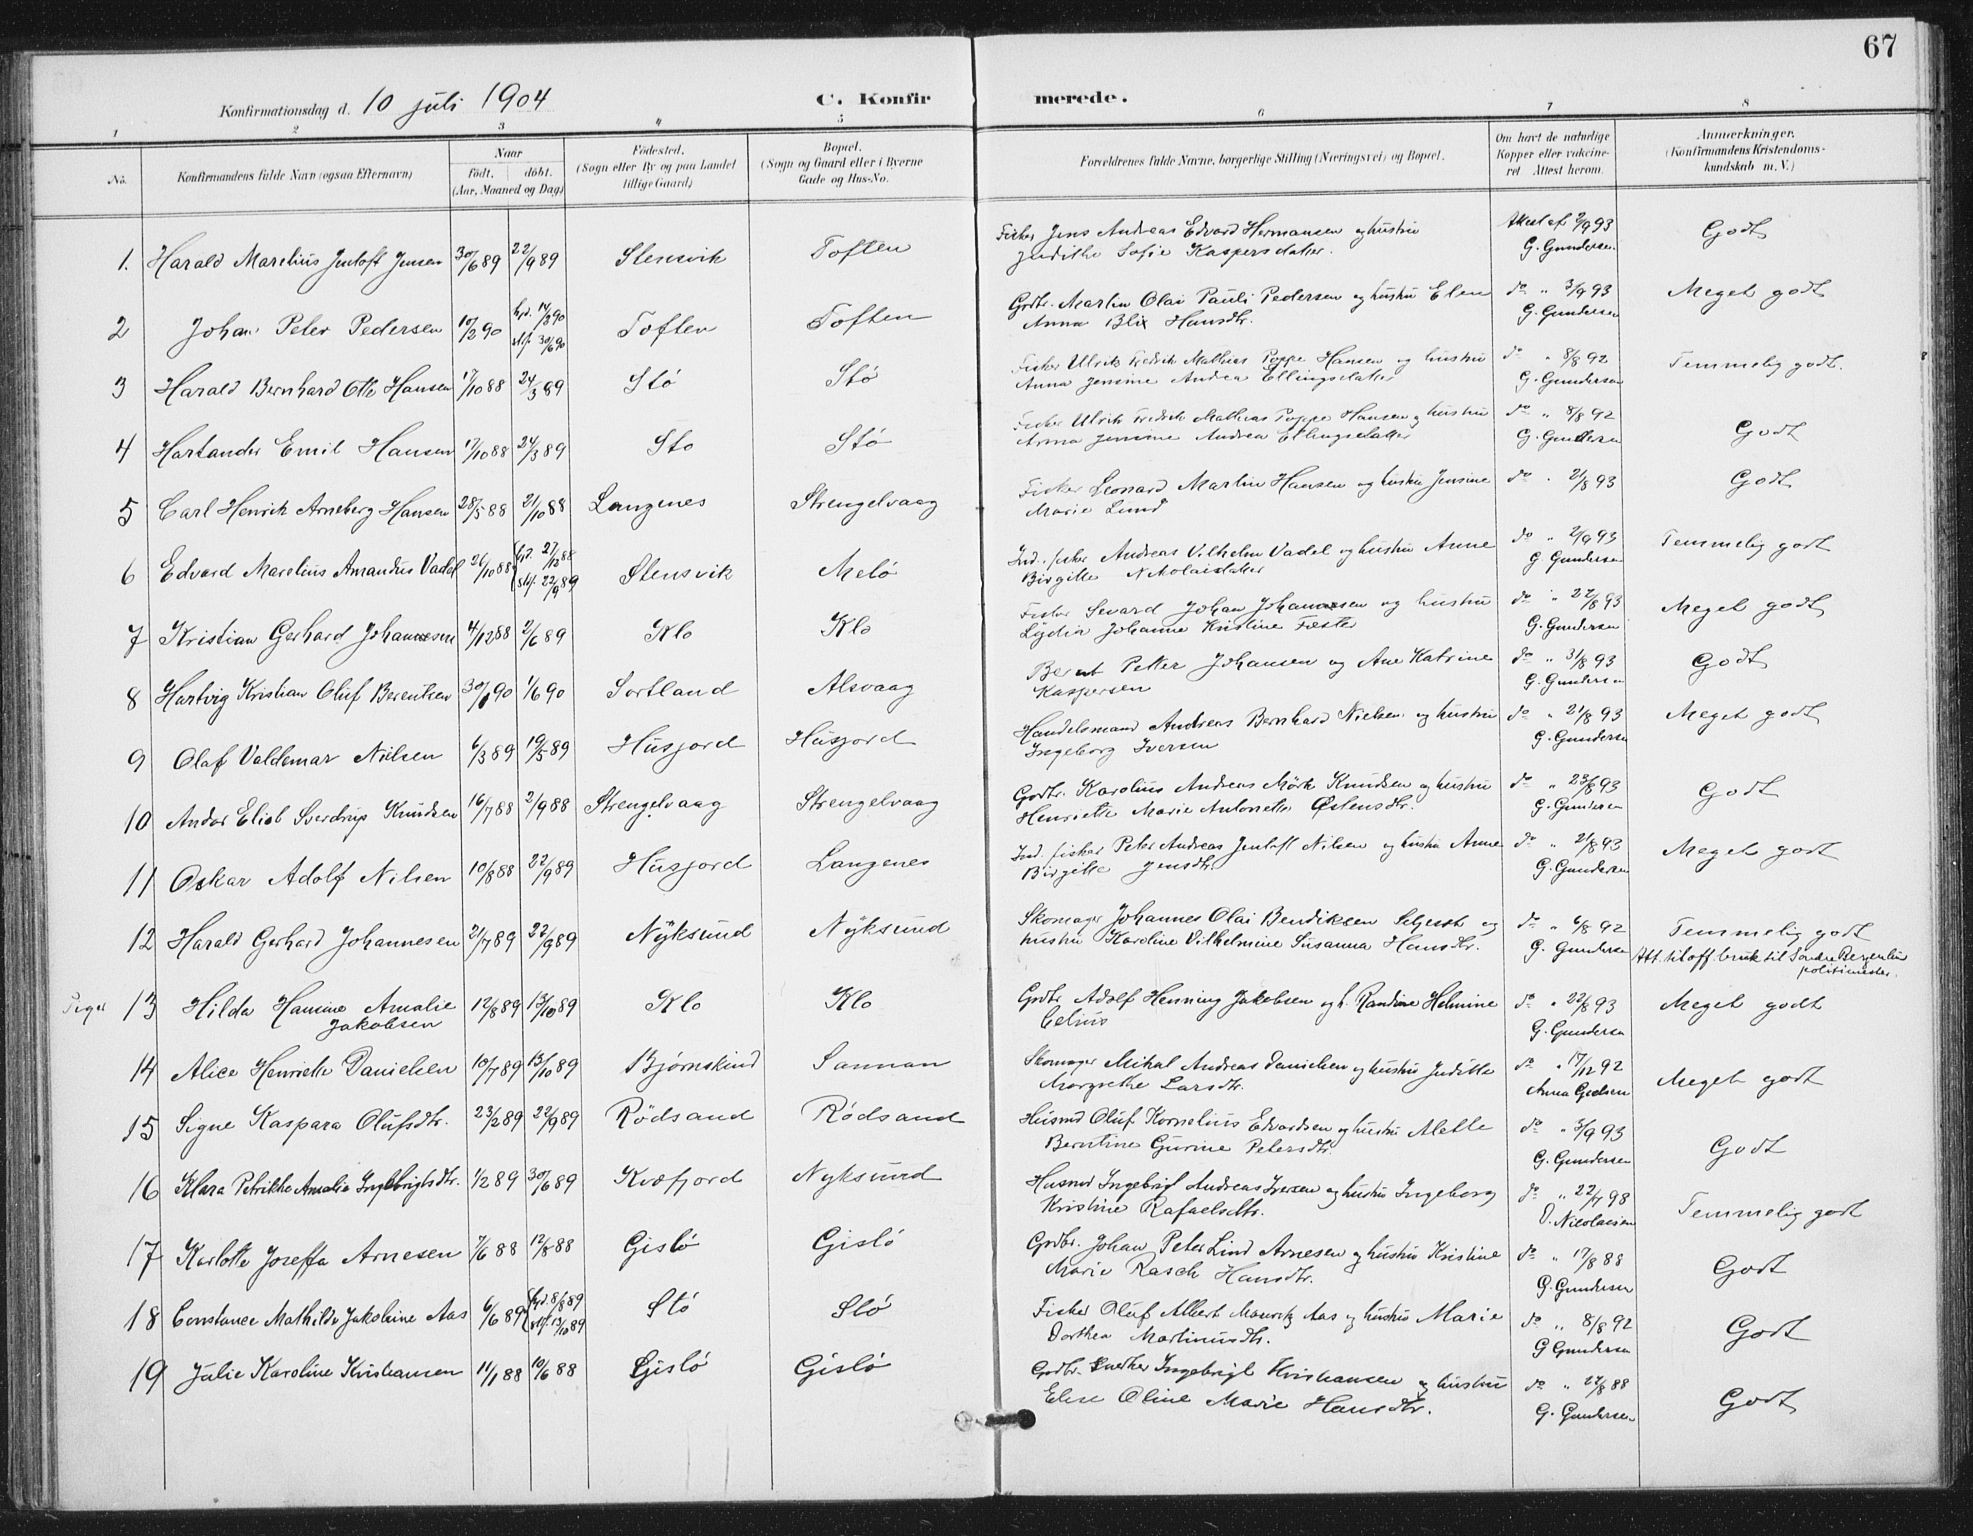 67
Konfirmationsdag d. 10 juli 1904 C. Konfirmerede.
1 2 3 4 5 6 7 8
No. Konfirmandens fulde Navn (ogsaa Efternavn) Naar födt. döbt. (Aar, Maaned og Dag) Födested. (Sogn eller By og paa Landet tillige Gaard) Bopæl. (Sogn og Gaard eller i Byerne Gade og Hus-No. Forældrenes fulde Navne, borgerlige Stilling (Næringsvei) og Bopæl. Om havt de naturlige Kopper eller vakcineret. Attest herom. Anmerkninger. (Konfirmandens Kristendomskundskab m. V.)
1. Harald Marelius Jentoft Jensen 30/6 89 22/9 89 Stensvik Toften Fisker Jens Andreas Edvard Hermansen og hustru Attest af 2/9 93 Godt
Judithe Sofie Kaspersdatter. G. Gundersen
2 Johan Peter Pedersen 10/2 90 hjd. 14/3 90 stf. 30/6 90 Toften Toften Grdbr. Martin Olai Pauli Pedersen og hustru Elen do " 3/9 93 Meget godt
Anna Blix Hansdtr. G. Gundersen
3 Harald Bernhard Otto Hansen 17/10 88 24/3 89 Stö Stö Fisker Ulrik Fredrik Mathias Poppe Hansen og hustru do " 8/8 92 Temmelig godt.
Anna Jensine Andrea Ellingsdatter G. Gundersen
4 Hartander Emil Hansen 17/10 88 24/3 89 Sto Stö Fisker Ulrik Fredrik Mathias Poppe Hansen og hustru do " 8/8 92 Godt
Anna Jensine Andrea Ellingsdatter G. Gundersen
5 Carl Henrik Arneberg Hansen 28/5 88 21/10 88 Langenes Strengelvaag Fisker Leonard Martin Hansen og hustru Jensine do " 21/8 93 Godt
Marie Lund
6 Edvard Marelius Amandus Vadel 26/10 88 hjd. 27/12 88 stf. 22/9 89 Stensvik Melö Ind. fisker Andreas Vilhelm Vadel og hustru Anne do " 2/9 93 Temmelig godt
Birgitte Nikolaisdatter G. Gundersen
7 Kristian Gerhard Johannesen 4/12 88 2/6 89 Klo Klo Fisker Sevard Johan Johannesen og hustru do " 22/8 93 Meget godt
Lydia Johanne Kristine Fæster G. Gundersen
8 Hartvig Kristian Oluf Berentsen 30/1 90 1/6 90 Sortland Alsvaag Bernt Petter Johansen og Ane Katrine do " 31/8 93 Godt
Kaspersen G. Gundersen
9 Olaf Valdemar Nilsen 6/3 89 19/5 89 Husjord Husjord Handelsmand Andreas Bernhard Nielsen og hustru do " 21/8 93 Meget godt
Ingeborg Iversen G. Gundersen
10 Andor Elieb Sverdrup Knudsen 16/7 88 2/9 88 Strengelvaag Strengelvaag Grdbr. Karolius Andreas Mörk Knudsen og hustru do " 23/8 93 Godt
Henriette Marie Antonette Østensdtr. G. Gundersen
11 Oskar Adolf Nilsen 10/8 88 22/9 89 Husjord Langenes Ind. fisker Peter Andreas Jentoft Nilsen og hustru Anne do " 21/8 93 Meget godt
Birgitte Jensdtr. G. Gundersen
12 Harald Gerhard Johannesen 21/7 89 22/9 89 Nyksund Nyksund Skomager Johannes Olai Bendiksen Seljeseth og do " 6/8 92 Temmelig godt
hustru Karoline Vilhelmine Susanna Hansdtr. G. Gundersen Att. til off. bruk til Søndre Bergenhus politimester.
Piger 13 Hilda Hansine Amalie Jakobsen 12/8 89 13/10 89 Klo Klo Grdbr Adolf Henning Jakobsen og h. Randine Helmine do " 22/8 93 Meget godt
Celius G. Gundersen
14 Alice Henriette Danielsen 10/7 89 13/10 89 Bjørnskind Sannan Skomager Mikal Andreas Danielsen og hustru Judithe do " 17/12 92 Meget godt
Margrethe Larsdtr. Anna
15 Signe Kaspara Olufsdtr. 23/2 89 22/9 89 Rödsand Rödsand Husmd Oluf Kornelius Edvardsen og hustru Alette do " 3/9 93 Godt
Berntine Gurine Petersdtr. G. Gundersen
16 Klara Petrikke Amalie Ingebrigtsdtr. 1/2 89 30/6 89 Kvæfjord Nyksund Husmd Ingebrigt Andreas Iversen og hustru Ingeborg do " 22/7 98 Temmelig godt
Kristine Rafaelsdtr. O. Nicolaisen
17 Karlotte Joseffa Arnesen 7/6 88 12/8 88 Gislö Gislö Grdbr. Johan Peter Lind Arnesen og hustru Kristine do " 17/8 88 Godt
Marie Rasch Hansdtr. G. Gundersen
18 Constance Mathilde Jakobine Aas 6/6 89 hjd. 8/8 89 stf. 13/10 89 Stö Stö Fisker Oluf Albert Mauritz Aas og hustru Marie do " 8/8 92 Godt
Dorthea Martinusdtr. G Gundersen
19 Julie Karoline Kristiansen 11/1 88 10/6 88 Gislö Gislö Grdbr. Ingebrigt Kristiansen og hustru do " 27/8 88 Godt
Elise Oline Marie Hansdtr. G. Gundersen